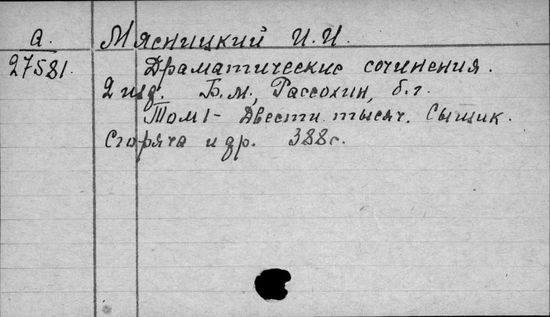 а. Мясницкий И.И.
27581. Драматические сочинения.
2 изд. Б.м., Рассохин, б.г.
Том 1 - Двести тысяч. Сыщик.
Сгоряча и др. 388с.